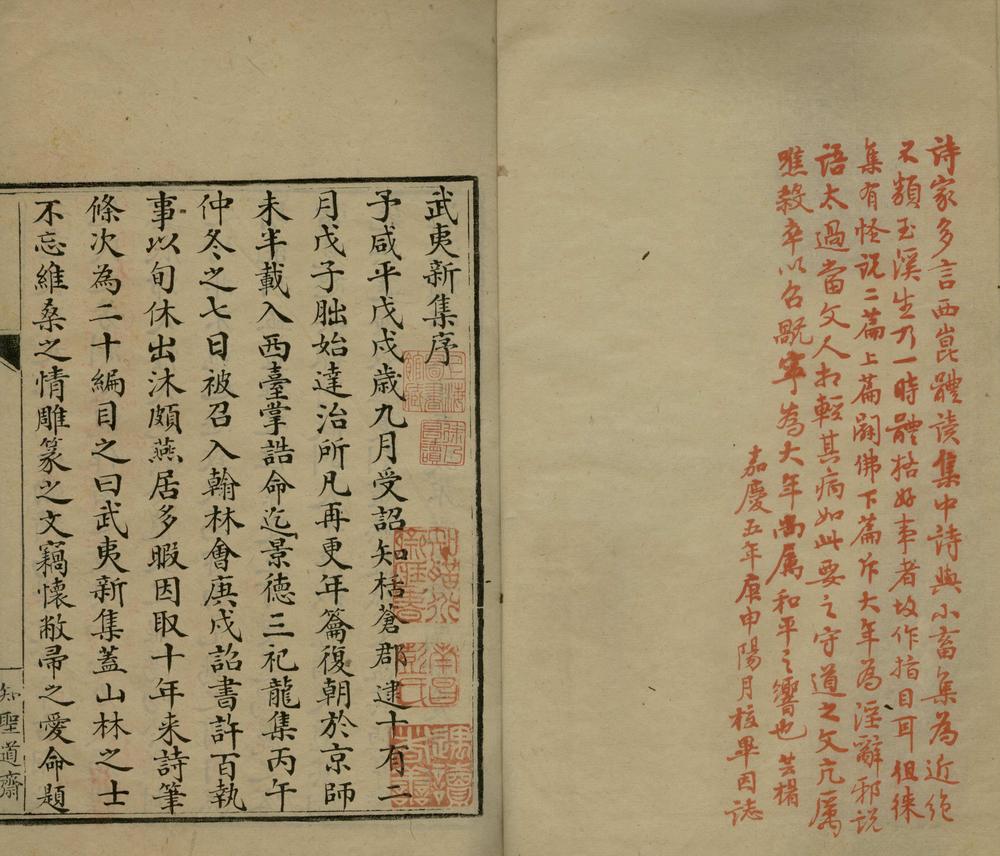 詩家多言西崑體讀集中詩與小畜集為近絕
不類玉溪生乃一時體格好事者故作指目耳徂徠
集有怪說二篇上篇闢佛下篇斥大年為淫辭邪說
語太過當文人相輕其病如此要之守道之文亢厲
噍殺卒以召釁寧為大年尚屬和平之響也芸楣
嘉慶五年庚申陽月校畢因誌
武夷新集序
予咸平戊戌歲九月受詔知栝蒼郡逮十有二
月戊子朏始達治所凡再更年籥復朝於京師
未半載入西臺掌誥命迄景德三祀龍集丙午
仲冬之七日被召入翰林會庚戌詔書許百執
事以旬休出沐頗燕居多暇因取十年来詩筆
條次為二十編目之曰武夷新集蓋山林之士
不忘維桑之情雕篆之文竊懷敝帚之愛命題
知聖道齋
南昌彭氏
知聖道齋藏書
遇讀者善